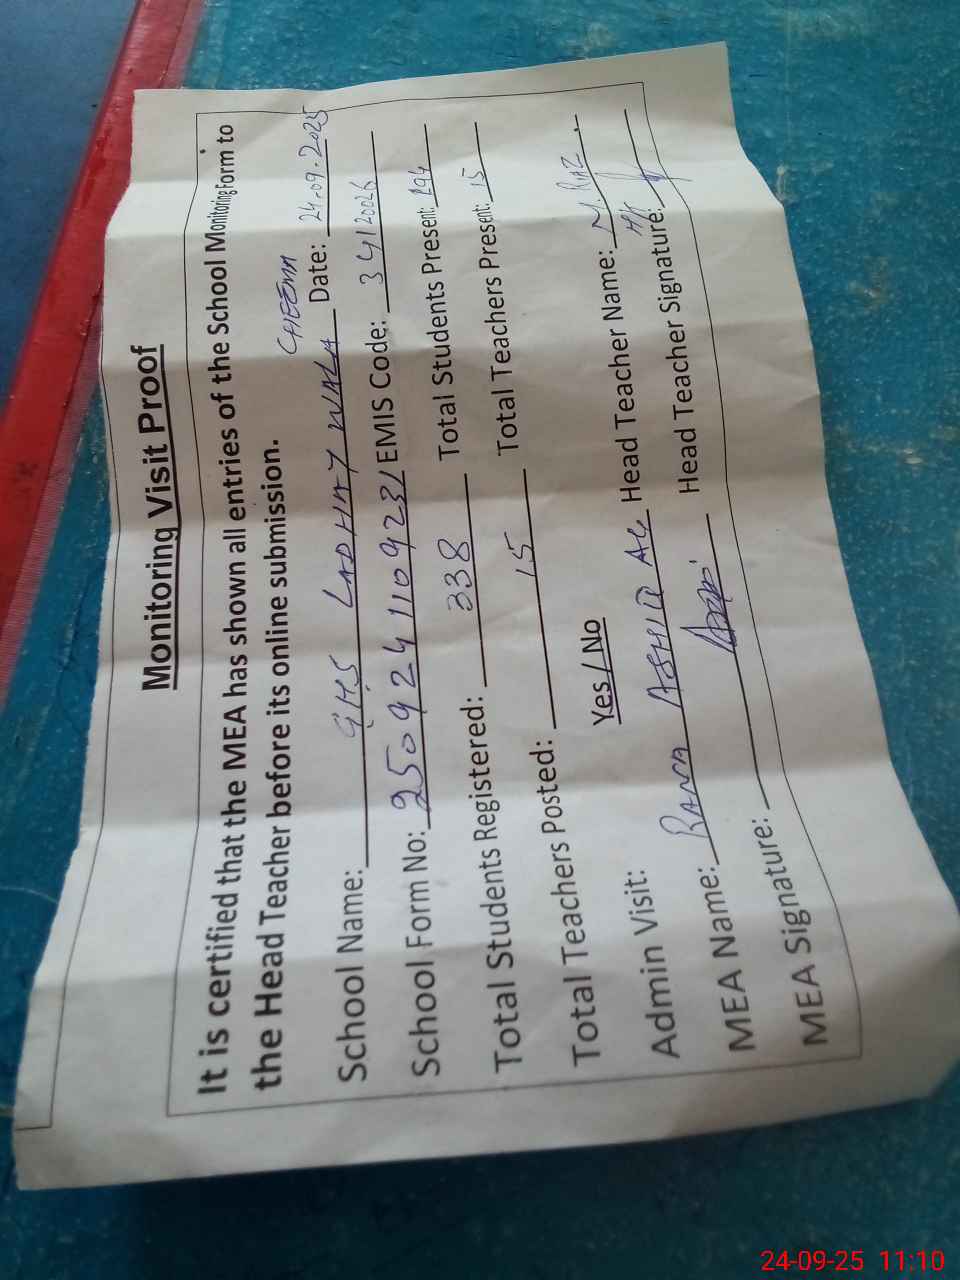 Monitoring Visit Proof
It is certified that the MEA has shown all entries of the School Monitoring Form to
the Head Teacher before its online submission.
CHEEMA
School Name: GHS LADHAY WALA Date: 24.09.2025
School Form No: 25092411109231 EMIS Code: 34120026
Total Students Registered: 338 Total Students Present: 294
Total Teachers Posted: 15 Total Teachers Present: 15
Admin Visit: Yes / No
MEA Name: RANA ASHIQ ALI Head Teacher Name: M. RIAZ
MEA Signature: Head Teacher Signature:
24-09-25 11:10